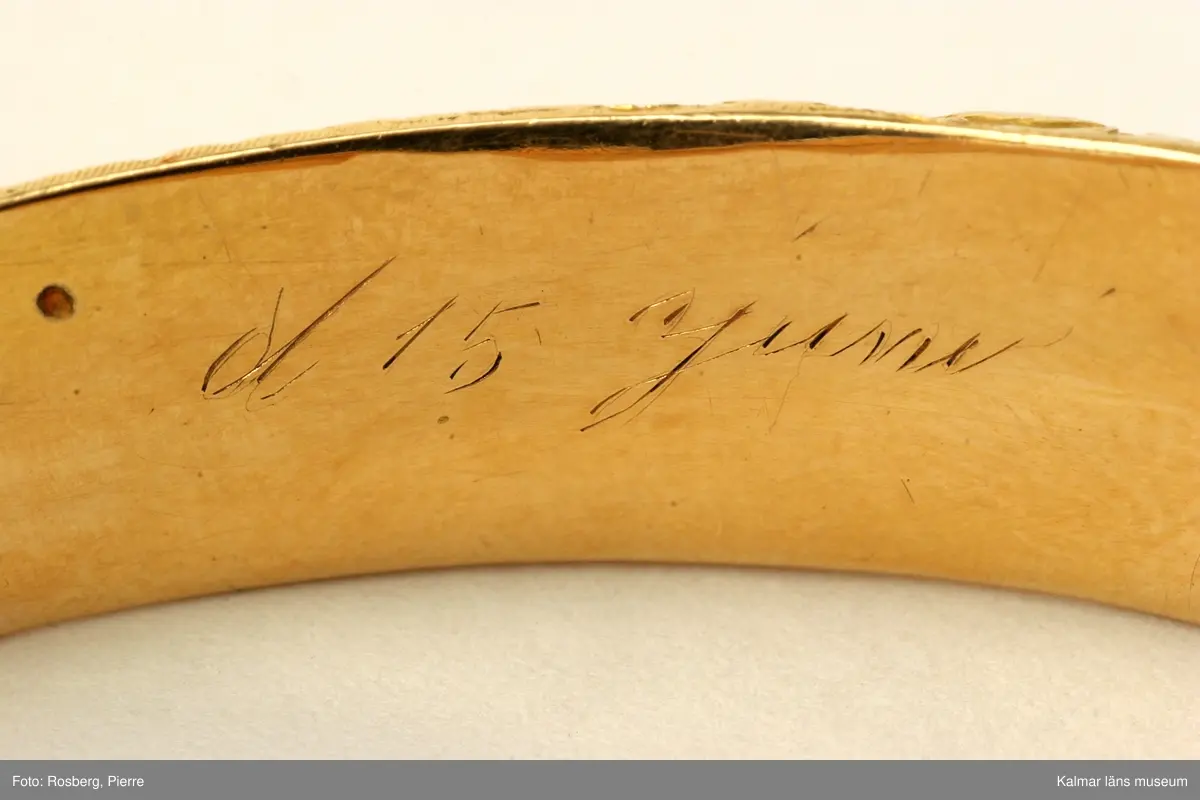 d 15 Juni
Foto: Rosberg, Pierre
Kalmar läns museum